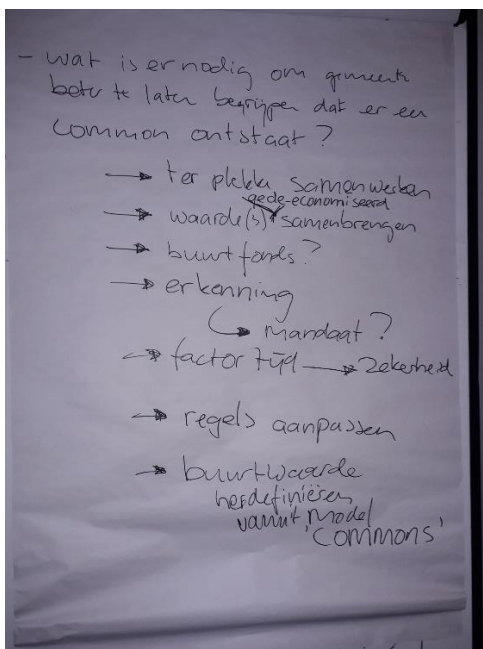 - wat is er nodig om gemeente
beter te laten begrijpen dat er een
common ontstaat?
→ ter plekke samenwerken
gede-economiseerd
→ waarde(s) samenbrengen
→ buurtfonds?
→ erkenning
↳ mandaat?
→ factor tijd → zekerheid
→ regels aanpassen
→ buurtwaarde
herdefiniëren
vanuit model
'COMMONS'